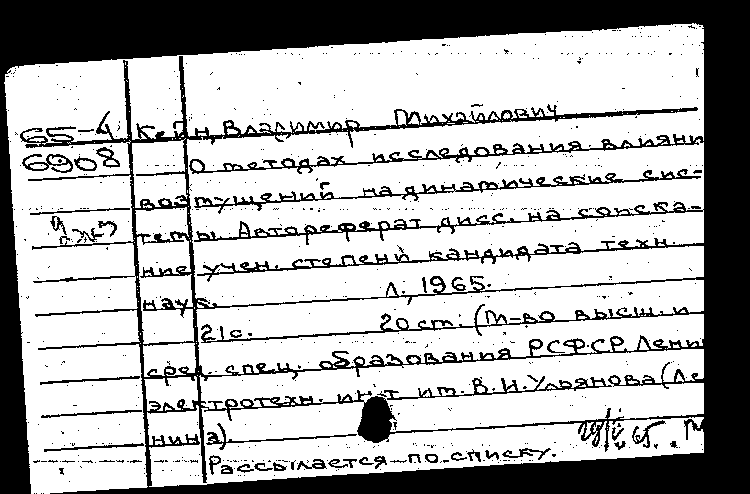 65-4 Кейн, Владимир Михайлович
6908 О методах исследования влияни
возмущений на динамические сис-
темы. Автореферат дисс. на соиска-
ние учен. степени кандидата техн.
наук. Л., 1965.
21 с. 20 см. (М-во высш. и
сред. спец. образования РСФСР. Ленин
электротехн. ин-т им. В.И. Ульянова (Ле
нина)
Рассылается по списку.